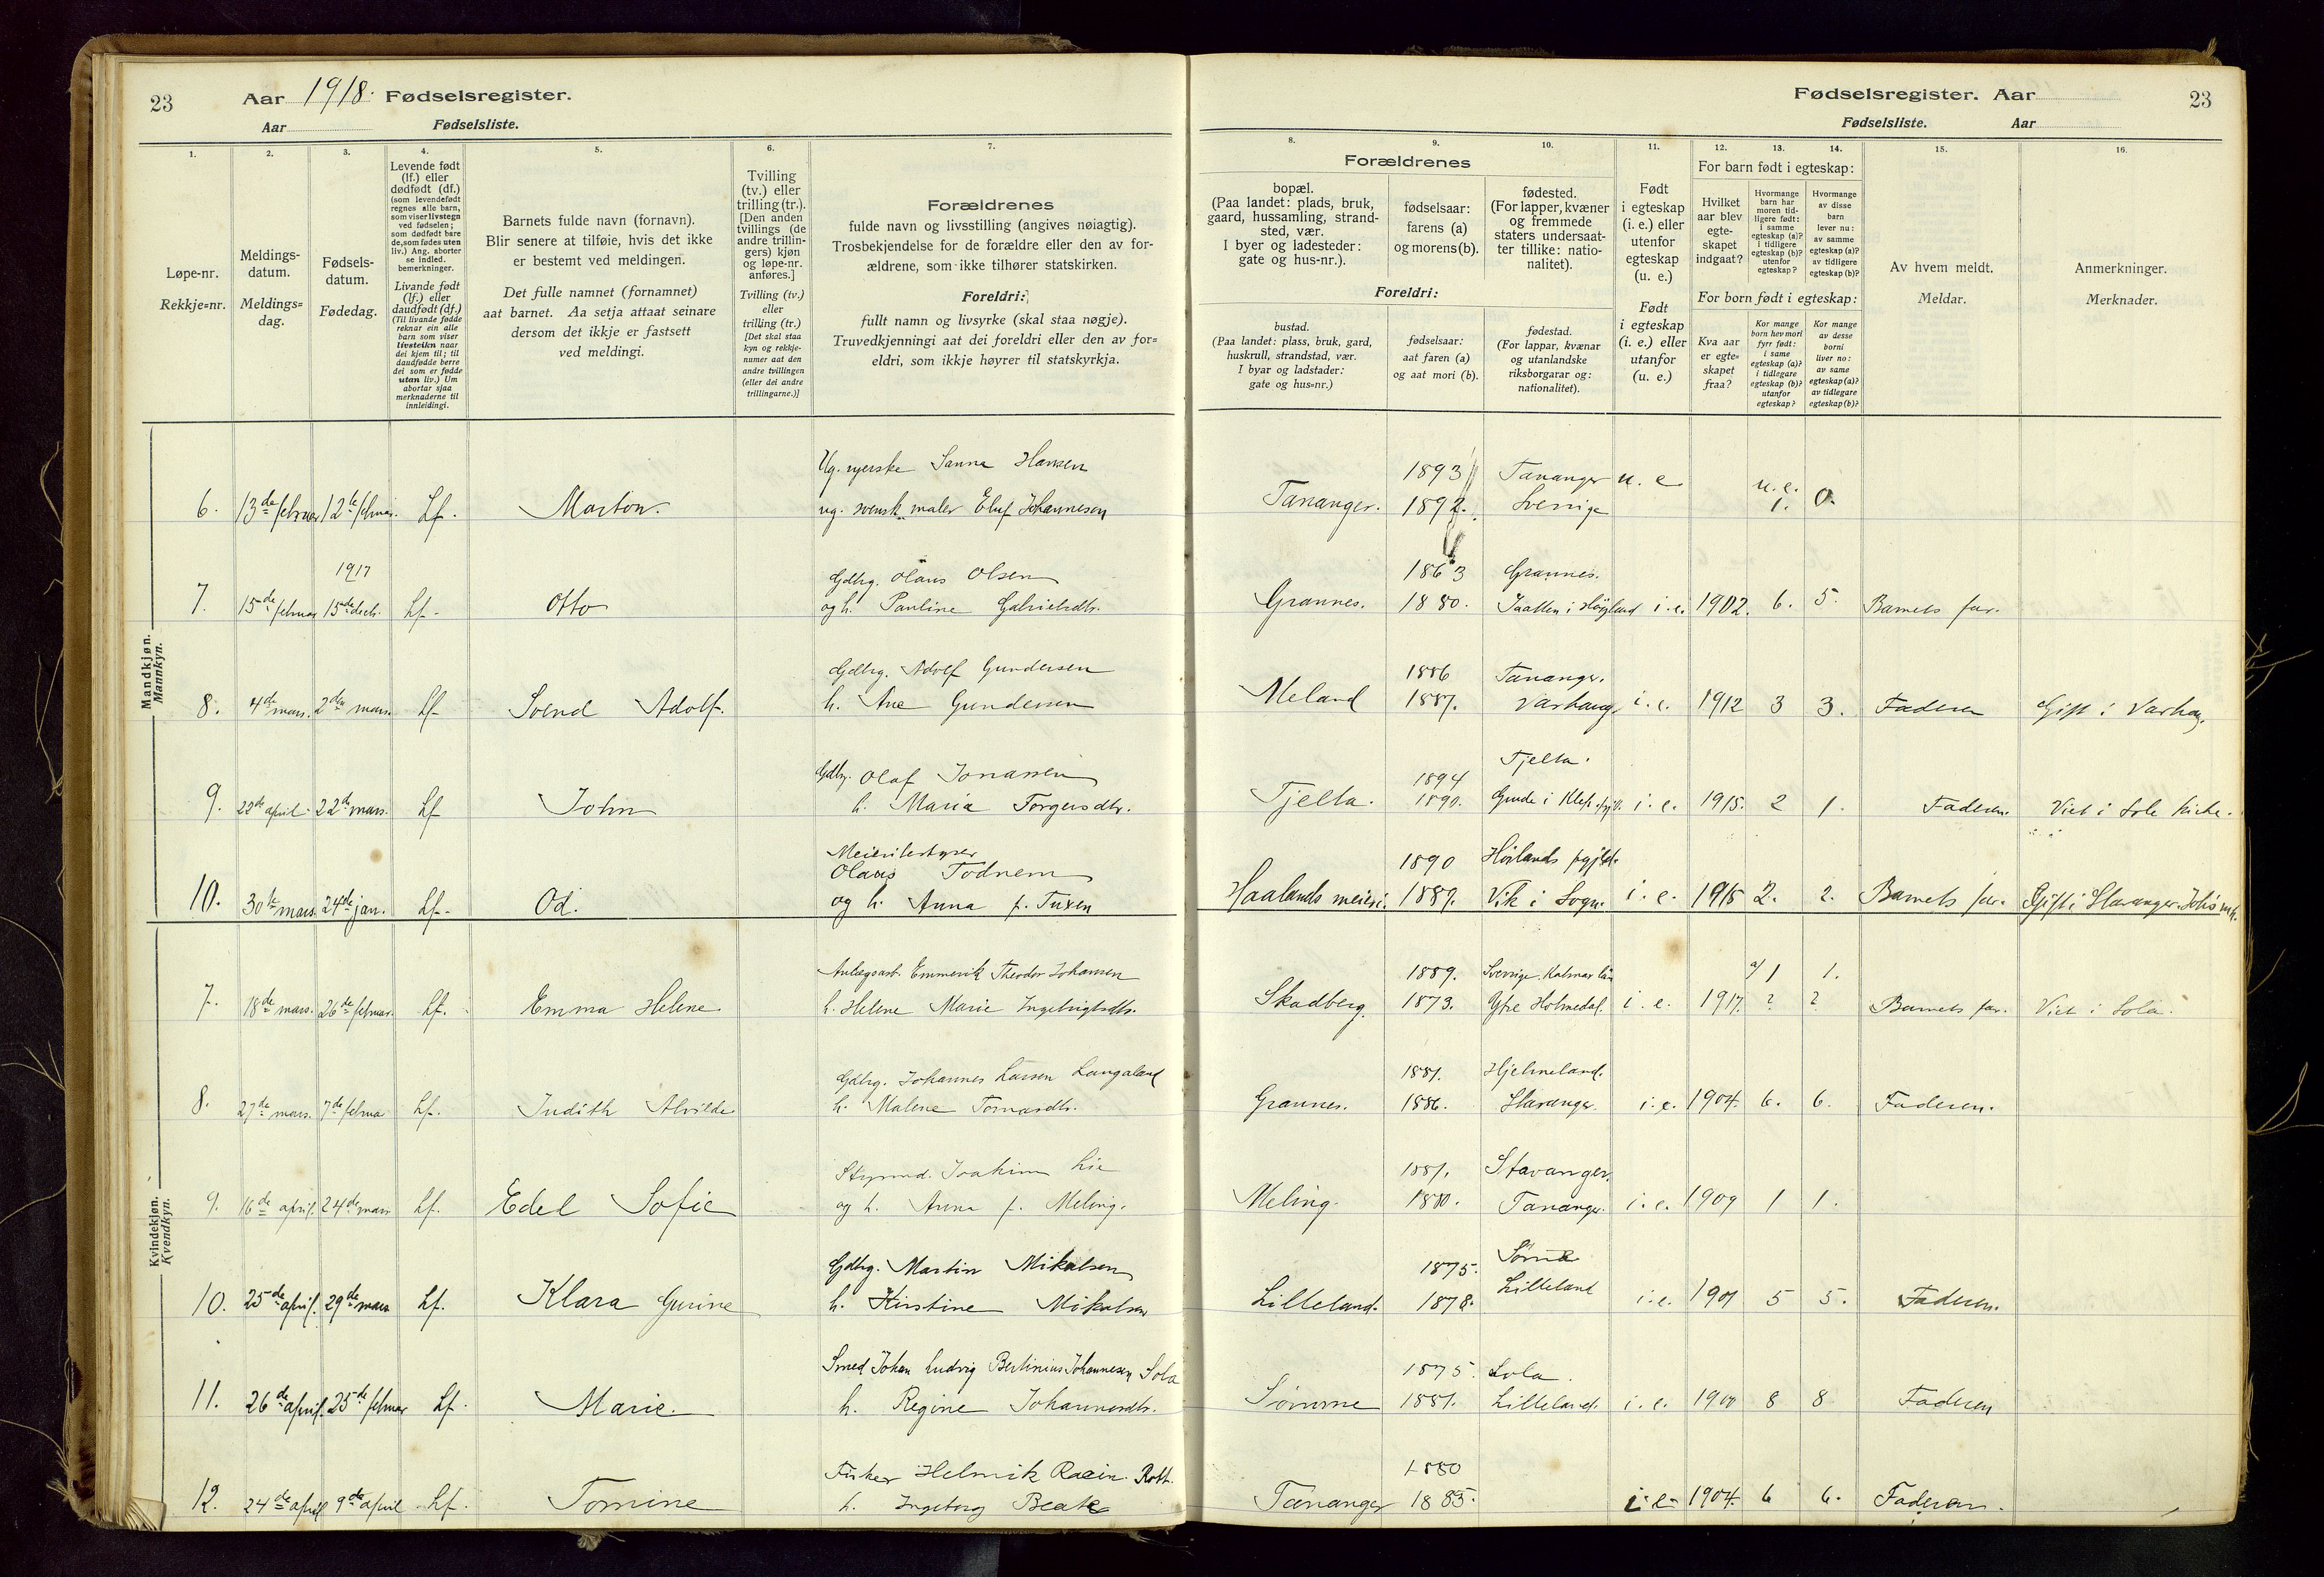 23 Aar 1918. Fødselsregister.
Aar Fødselsliste.
Fødselsregister. Aar 23
Fødselsliste. Aar
1. 2. 3. 4. 5. 6. 7. 8. 9. 10. 11. 12. 13. 14. 15. 16.
Løpe-nr.
Rekkje=nr.
Meldings-
datum.
Meldings=
dag.
Fødsels-
datum.
Fødedag.
Levende født
(lf.) eller
dødfødt (df.)
(som levendefødt
regnes alle barn,
som viser livstegn
ved fødselen;
som dødfødt bare
de, som fødes uten
liv.) Ang. aborter
se indled.
bemerkninger.
Livande født
(lf.) eller
daudfødt (df.)
(Til livande fødde
reknar ein alle
barn som viser
livsteikn naar
dei kjem til; til
daudfødde berre
dei som er fødde
utan liv.) Um
abortar sjaa
merknaderne til
innleidingi.
Barnets fulde navn (fornavn).
Blir senere at tilføie, hvis det ikke
er bestemt ved meldingen.
Det fulle namnet (fornamnet)
aat barnet. Aa setja attaat seinare
dersom det ikkje er fastsett
ved meldingi.
Tvilling
(tv.) eller
trilling (tr.).
[Den anden
tvillings (de
andre trillin-
gers) kjøn
og løpe-nr.
anføres.]
Tvilling (tv.)
eller
trilling (tr.)
[Det skal staa
kyn og rekkje-
numer aat den
andre tvillingen
(eller dei andre
trillingarne.)]
Forældrenes
fulde navn og livsstilling (angives nøiagtig).
Trosbekjendelse for de forældre eller den av for-
ældrene, som ikke tilhører statskirken.
Foreldri:
fullt namn og livsyrke (skal staa nøgje).
Truvedkjenningi aat dei foreldri eller den av for=
eldri, som ikkje høyrer til statskyrkja.
Forældrenes
bopæl.
(Paa landet: plads, bruk,
gaard, hussamling, strand-
sted, vær.
I byer og ladesteder:
gate og hus-nr.).
fødselsaar:
farens (a)
og morens (b).
fødested.
(For lapper, kvæner
og fremmede
staters undersaat-
ter tillike: natio-
nalitet).
Foreldri:
bustad.
(Paa landet: plass, bruk, gard,
huskrull, strandstad, vær.
I byar og ladstader:
gate og hus=nr.)
fødselsaar:
aat faren (a)
og aat mori (b).
fødestad.
(For lappar, kvænar
og utanlandske
riksborgarar og:
nationalitet).
Født
i egteskap
(i. e.) eller
utenfor
egteskap
(u. e.)
Født
i egteskap
(i. e.) eller
utanfor
(u. e.)
For barn født i egteskap:
Hvilket
aar blev
egte-
skapet
indgaat?
Hvormange
barn har
moren tid-
ligere født:
i samme
egteskap (a)?
i tidligere
egteskap (b)?
utenfor
egteskap?
Hvormange
av disse
barn
lever nu:
av samme
egteskap (a)?
av tidligere
egteskap (b)?
For born født i egteskap:
Kva aar
er egte=
skapet
fraa?
Kor mange
born hev mori
fyrr født:
i same
egteskap (a)?
i tidlegare
egteskap (b)?
utanfor
egteskap?
Kor mange
av desse
borni
liver no:
av same
egteskap (a)?
av tidlegare
egteskap (b)?
Av hvem meldt.
Meldar.
Anmerkninger.
Merknader.
Mandkjøn.
Mannkyn.
Ug. syerske Sanna Hansen 1893 Tananger u. e u. e.
6. 13de februar 12te februar. Lf. Marton. ug. svensk maler Eluf Johannesen Tananger. 1892. Sverrige 1. 0.
1917 Gdbrg. Olaus Olsen 1863 Grannes.
7. 15de februar 15de decbr. Lf. Otto og h. Pauline Gabrielsdtr. Grannes. 1880. Jaatten i Høyland i. e. 1902. 6. 5. Barnets far.
Gdbrg. Adolf Gundersen 1886 Tananger.
8. 4de mars. 2den mars. Lf. Svend Adolf. h. Ane Gundersen Meland 1887. Varhaug i. e. 1912 3 3. Faderen Gift i Varhaug.
Gdbr. Olaf Jonassen 1894 Tjelta.
9. 22de april 22de mars. Lf John h. Maria Torgersdtr. Tjelta. 1890. Grude i Klep i. e. 1915. 2 1. Faderen. Viet i Sole kirke.
Meieribestyrer
Olaus Todnem 1890 Høilands pgjld.
10. 30te mars. 24de jan. Lf. Od. og h. Anna f. Tuxen Haalands meieri. 1889. Vik i Sogn. i. e. 1915 2. 2. Barnets far. Gift i Stavanger
Kvindekjøn.
Kvendkyn.
Anlægsarb. Emmerik Theodor Johansen 1889. Sverrige. Kalmar län a/ 1 1.
7. 18de mars. 26de februar. Lf. Emma Helene. h. Helene Marie Ingebrigtsdtr. Skadberg. 1873. Ytre Holmedal. i. e. 1917. ? ? Barnets far. Viet i Sola.
Gdbrg. Johannes Larsen Langaland 1881. Hjelmeland.
8. 27de mars. 7de februa Lf. Judith Alvilde h. Malene Tornasdtr. Grannes. 1886. Stavanger. i. e. 1904. 6. 6. Faderen.
Styrmd. Joakim Lie 1881. Stavanger.
9. 16de april. 24de mars Lf. Edel Sofie og h. Anna f. Meling. Meling. 1880. Tananger. i. e. 1909 1 1.
Gdbrg. Martin Mikalsen 1875. Sømme
10. 25de april. 29de mars Lf. Klara Gurine h. Kirstine Mikalsen Lilleland. 1878. Lilleland i. e. 1901 5 5. Faderen.
Smed Johan Ludvig Bertinius Johannesen Sola 1875. Sola.
11. 26de april. 25de februar Lf. Marie. h. Regine Johannesdtr. Sømme 1881. Lilleland. i. e. 1900 8 8 Faderen
Fisker Helmik Racin. Rott. 1880
12. 24de april 9de april Lf. Tomine h. Ingeborg Beate Tananger 1885. i. e. 1904. 6 6. Faderen.